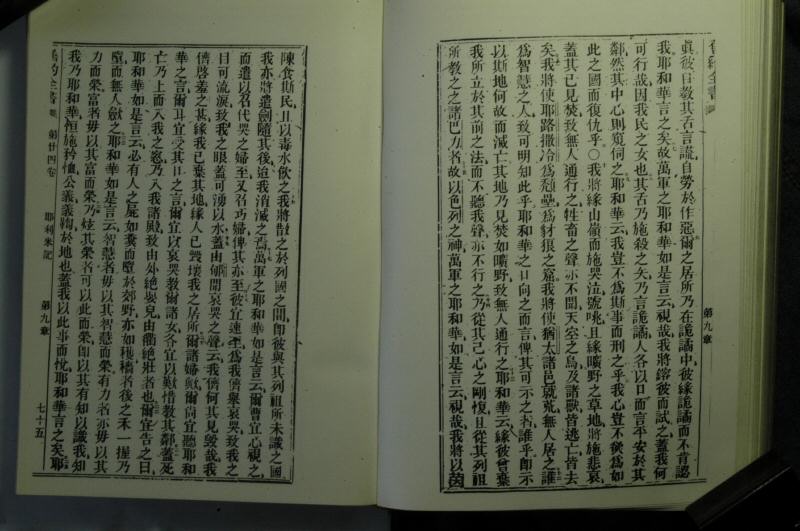 舊約全書
第九章
眞彼曰教其舌言謊自勞於作惡爾之居所乃在詭譎中彼緣詭譎而不肯認
我耶和華言之矣故萬軍之耶和華如是言云視哉我將鎔彼而試之蓋我何
可行哉因我民之女也其舌乃施殺之矢乃言詭譎人各以口而言平安於其
鄰然其中心則窺伺之耶和華云我豈不爲斯事而刑之乎我心豈不俟爲如
此之國而復仇乎〇我將緣山嶺而施哭泣號咷且緣曠野之草地將施悲哀
蓋其已見焚致無人通行之牲畜之聲亦不聞天空之鳥及諸獸皆逃亡皆去
矣我將使耶路撒冷爲頹壘爲豺狼之窟我將使猶太諸邑就荒無人居之誰
爲智慧之人致可明知此乎耶和華之口向之而言俾其可示之者誰乎卽示
以斯地何故而滅亡其地乃見焚如曠野致無人通行之耶和華云緣彼曾棄
我所立於其前之法而不聽我聲亦不行之乃從其己心之剛愎且從其列祖
所教之之諸巴力者故以色列之神萬軍之耶和華如是言云視哉我將以茵
陳食斯民且以毒水飲之我將散之於列國之間卽彼與其列祖所未識之國
我亦將遣劍隨其後迨我消滅之焉萬軍之耶和華如是言云爾曹宜心視之
而遣以召代哭之婦至又召巧婦俾其亦至彼宜速至爲我儕舉哀哭致我之
目可流淚致我之眼蓋可湧以水蓋由郇聞哀哭之聲云我儕何其見毀哉我
儕啓羞之甚緣我已棄其地緣人已毀壞我之居所爾諸婦歟尙宜聽耶和
華之言爾耳宜受其口之言爾宜以哀哭教爾諸女各宜以歎惜教其鄰蓋死
亡乃上而入我之窓乃入我諸殿致由外絕嬰兒由衢絕壯者也爾宜告之曰
耶和華如是言云必有人之屍如糞而墮於郊野亦如穫穡者後之禾一握乃
墮而無人斂之耶和華如是言云智慧者毋以其智慧而榮乃有力者亦毋以其
力而榮富者毋以其富而榮乃炫其榮者可以此而榮卽以其有知以識我知
我乃耶和華恒施矜恤公義義鞫於地也蓋我以此事而悅耶和華言之矣耶
舊約全書 第廿四卷 耶利米記 第九章 七十五